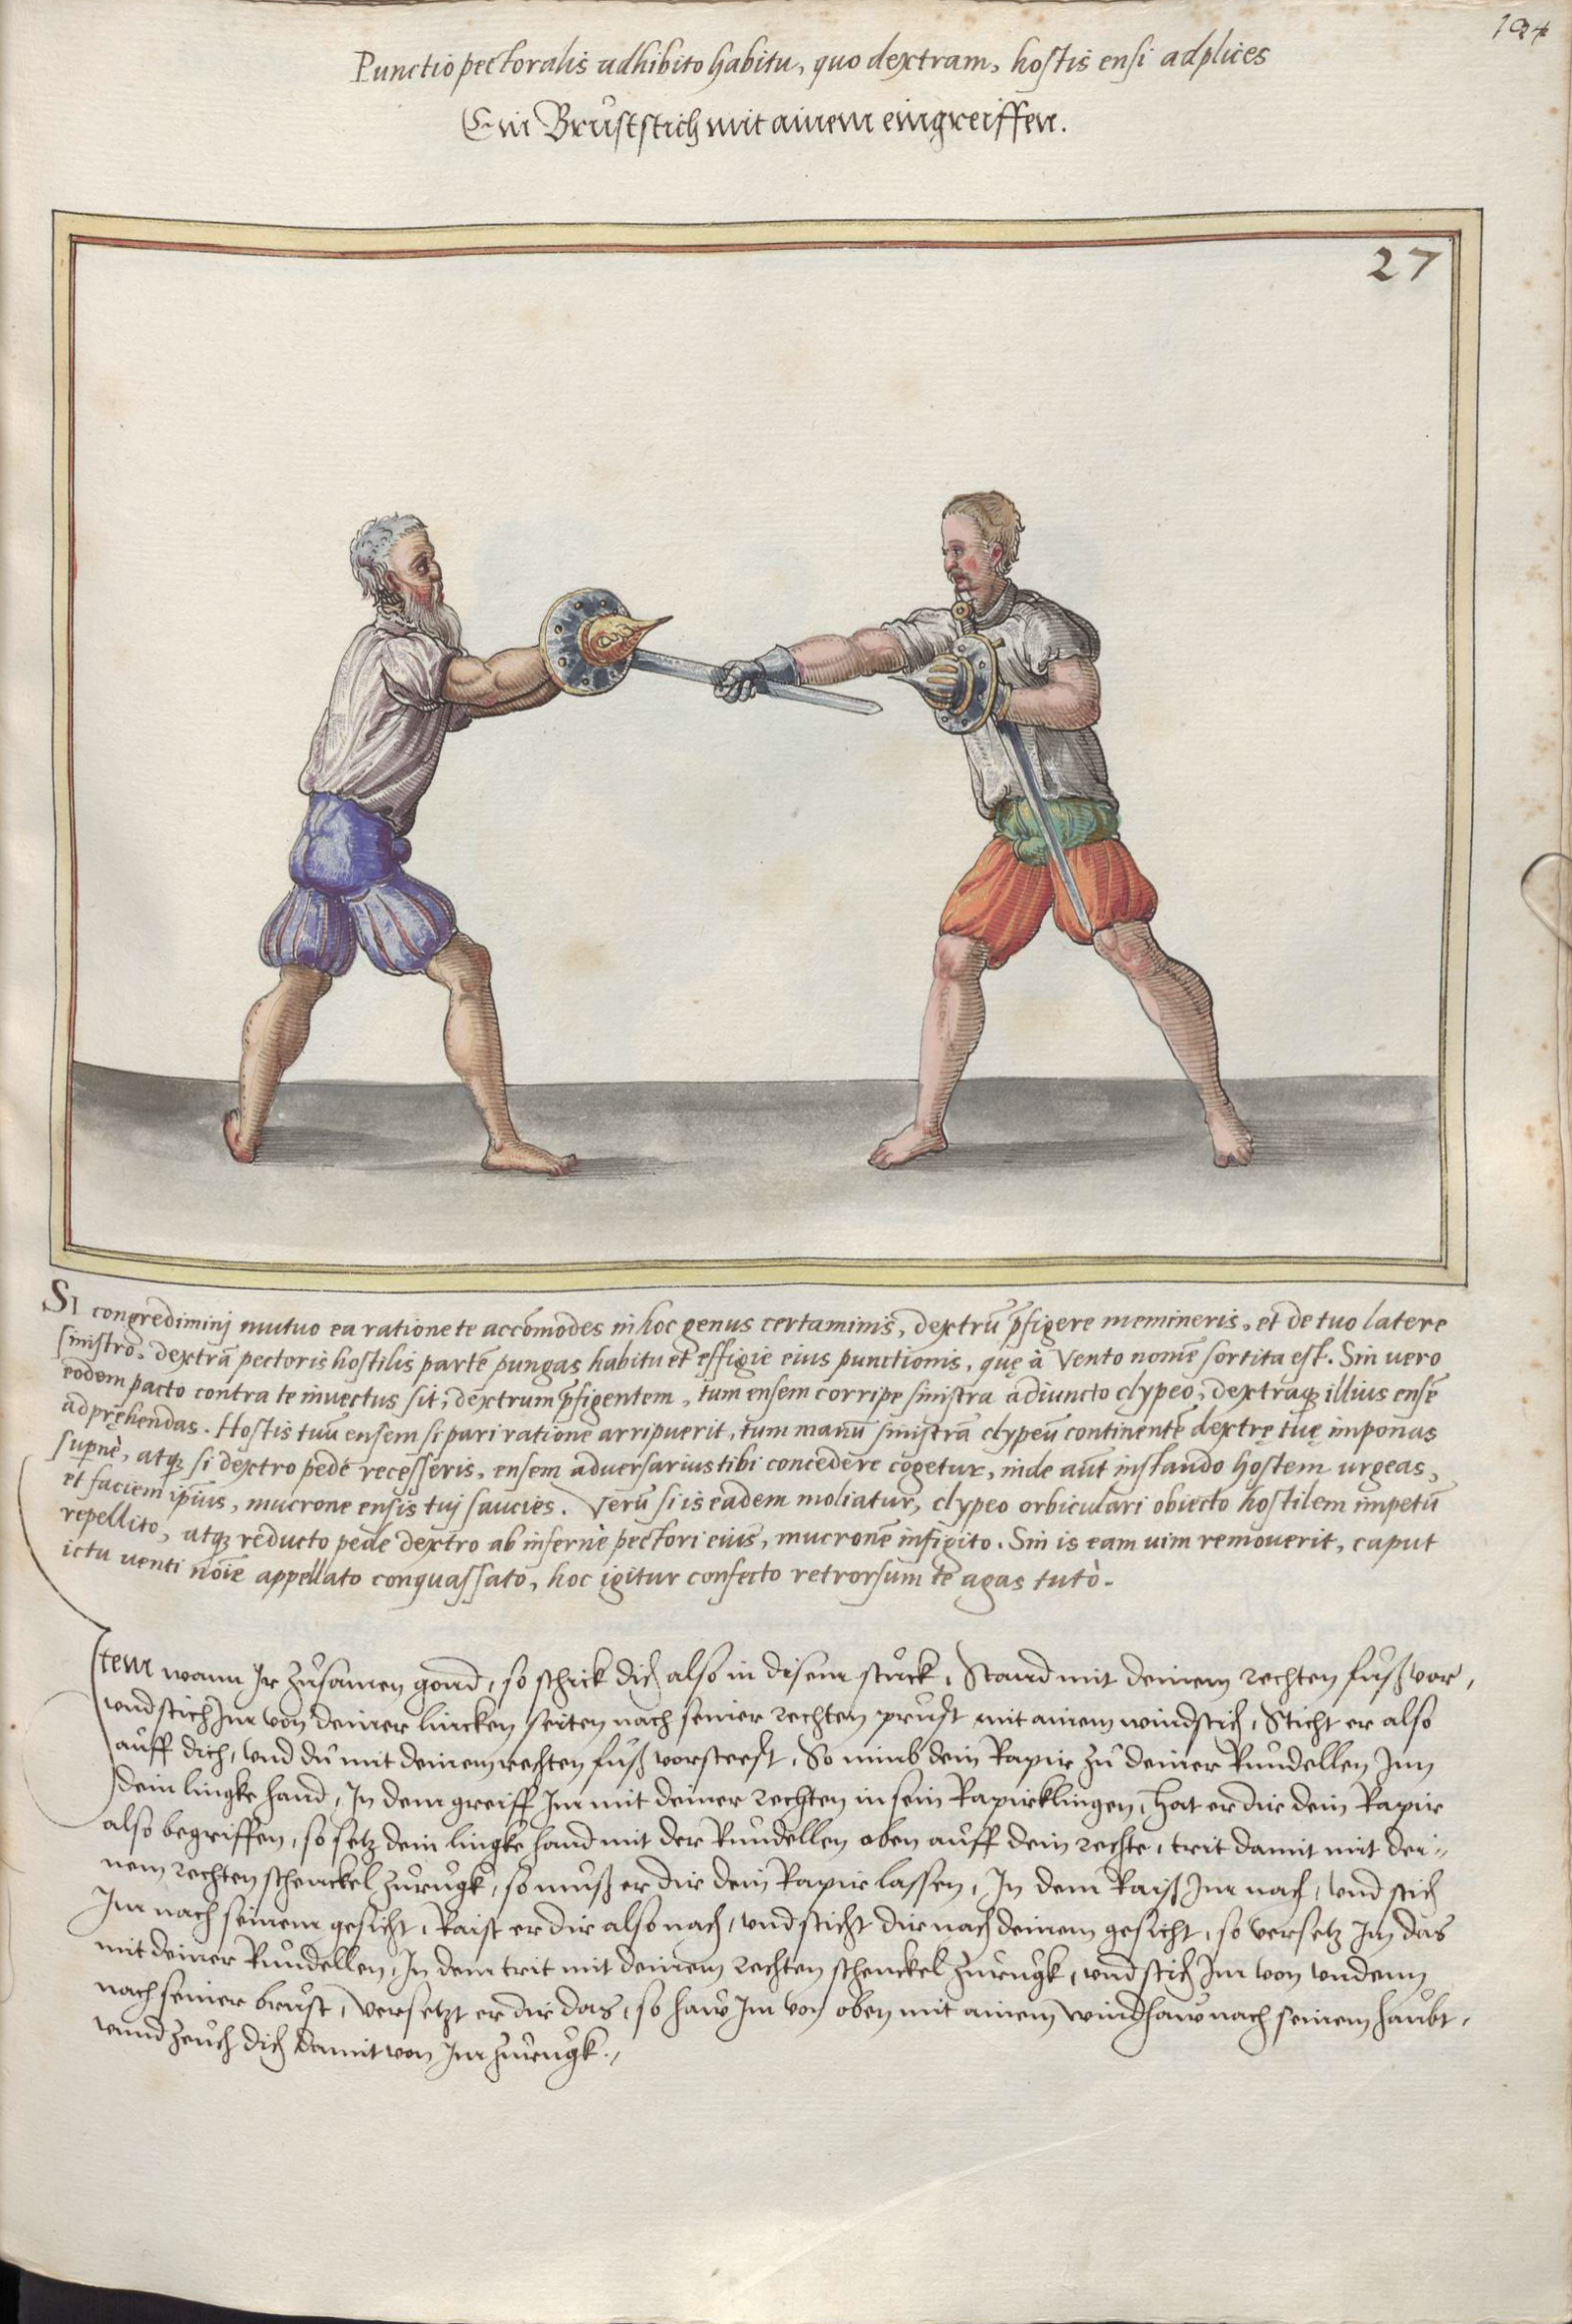 194
Punctio pectoralis adhibito habitu, quo dextram, hostis ensi adplices
Ein Bruststich mit ainem eingreiffen.
27
Si congrediminj mutuo ea ratione te accõmodes in hoc genus certaminis, dextrũ p̃figere memineris, et de tuo latere
sinistro, dextrã pectoris hostilis partẽ pungas habitu et effigie eius punctionis, quę à Vento nomẽ sortita est. Sin uero
eodem pacto contra te inuectus sit, dextrum p̃figentem, tum ensem corripe sinistra adiuncto clypeo, dextraq; illius ensẽ
adprẹhendas. Hostis tuũ ensem si pari ratione arripuerit, tum manũ sinistrã clypeũ continentẽ dextrę tuę imponas
supernè, atq; si dextro pede recesseris, ensem aduersarius tibi concedere cogetur, inde aũt instando hostem urgeas,
et faciem ipsius, mucrone ensis tuj saucies. Verũ si is eadem moliatur, clypeo orbiculari obiecto hostilem impetũ
repellito, atq; reducto pede dextro ab infernè pectori eius, mucronẽ infigito. Sin is eam uim remouerit, caput
ictu uenti noĩe appellato conquassato, hoc igitur confecto retrorsum te agas tutò.
Item wann Ir zůsamen gond, so schick dich also in disem stuck, Stand mit deinem rechten fůß vor,
vnd stich Im von deiner lincken seiten nach seiner rechten prust mit ainem windstich, Sticht er also
auff dich, vnd du mit deinem rechten fůß vorsteest, So nimb dein Rapir zů deiner Rundellen Inn
dein lingke hand, In dem greiff Im mit deiner rechten in sein Rapierklingen, Hat er dir dein Rapir
also begriffen, so setz dein lingke hand mit der Rundellen oben auff dein rechte, trit damit mit dei=
nem rechten schenckel zůrugk, so můß er dir dein Rapir lassen, In dem Raiß Im nach, vnd stich
Im nach seinem gesicht, Raist er dir also nach, vnd sticht dir nach deinem gesicht, so versetz Im das
mit deiner Rundellen, In dem trit mit deinem rechten schenckel zůrugk, vnd stich Im von vndenn
nach seiner brust, versetzt er dir das, so haw Im von oben mit ainem windhaw nach seinem haubt,
vnnd zeuch dich damit von Im zůrugk.